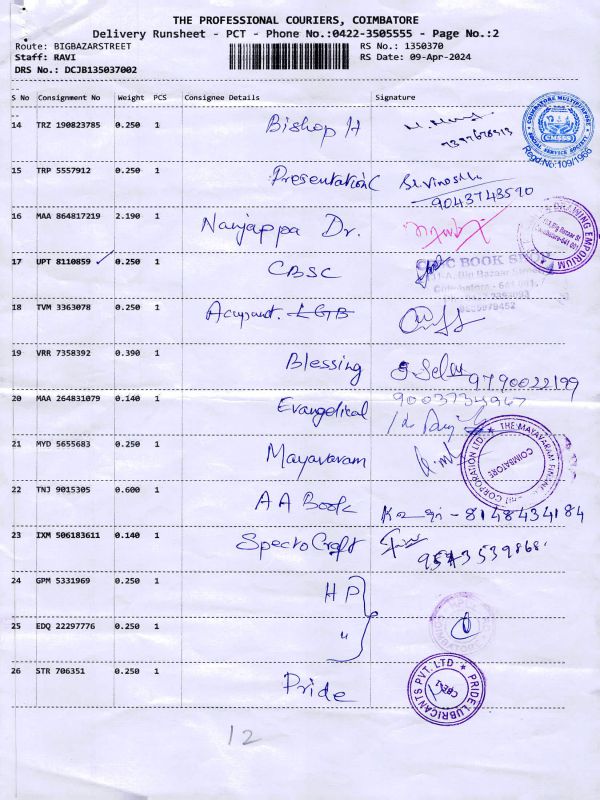 THE PROFESSIONAL COURIERS, COIMBATORE
Delivery Runsheet - PCT - Phone No.:0422-3505555 - Page No.:2
Route: BIGBAZARSTREET RS No.: 1350370
Staff: RAVI RS Date: 09-Apr-2024
DRS No.: DCJB135037002
S No Consignment No Weight PCS Consignee Details Signature
14 TRZ 190823785 0.250 1 Bishop H
COIMBATORE MULTIPURPOSE SOCIAL SERVICE SOCIETY
Regd.No:109/1966
15 TRP 5557912 0.250 1 Presentation C
9043743590
16 MAA 864817219 2.190 1 Nanjappa Dr.
EMPORIUM
17 UPT 8110859 0.250 1 CBSC
BOOK
Big Bazaar Street
Coimbatore - 641 001.
18 TVM 3363078 0.250 1 LGB
19 VRR 7358392 0.390 1 Blessing 9790022199
20 MAA 264831079 0.140 1 Evangelical
21 MYD 5655683 0.250 1 Mayavaram
THE MAYAVARAM FINAN CORPORATION LTD
COIMBATORE
22 TNJ 9015305 0.600 1 A A Book - 8148434184
23 IXM 506183611 0.140 1 Specto Craft
24 GPM 5331969 0.250 1 HP
25 EDQ 22297776 0.250 1 "
26 STR 706351 0.250 1 Pride
PRIDE LUBRICANTS PVT. LTD
CBE-1
12